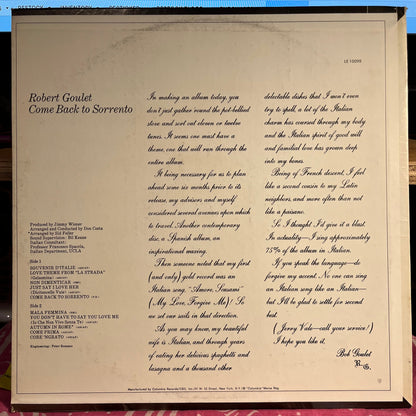 LE 10099
Robert Goulet
Come Back to Sorrento
Produced by Jimmy Wisner
Arranged and Conducted by Don Costa
*Arranged by Sid Feller
Sound Supervision: Ed Kenan
Italian Consultant:
Professor Francesco Speroda,
Italian Department, UCLA
Side 1
SOUVENIR D'ITALIE
LOVE THEME FROM "LA STRADA"
(Gelsomina)
NON DIMENTICAR
JUST SAY I LOVE HER
(Dicitencello Vuie)
COME BACK TO SORRENTO
Side 2
MALA FEMMINA
YOU DON'T HAVE TO SAY YOU LOVE ME
(Io Che Non Vivo Senza Te)
AUTUMN IN ROME*
COME PRIMA
CORE 'NGRATO
Engineering: Peter Romano
In making an album today, you
don't just gather round the pot-bellied
stove and sort out eleven or twelve
tunes. It seems one must have a
theme, one that will run through the
entire album.
It being necessary for us to plan
ahead some six months prior to its
release, my advisors and myself
considered several avenues upon which
to travel. Another contemporary
disc, a Spanish album, an
inspirational waxing.
Then someone noted that my first
(and only) gold record was an
Italian song, "Amore, Scusami"
(My Love, Forgive Me)! So
we set our sails in that direction.
As you may know, my beautiful
wife is Italian, and through years
of eating her delicious spaghetti and
lasagna and a thousand other
delectable dishes that I won't even
try to spell, a lot of the Italian
charm has coursed through my body
and the Italian spirit of good will
and familial love has grown deep
into my bones.
Being of French descent, I feel
like a second cousin to my Latin
neighbors, and more often than not
like a paisano.
So I thought I'd give it a blast.
In actuality—I sing approximately
75% of the album in Italian.
If you speak the language—do
forgive my accent. No one can sing
an Italian song like an Italian—
but I'll be glad to settle for second
best.
(Jerry Vale—call your service!)
I hope you like it.
Bob Goulet
R. G.
Manufactured by Columbia Records/CBS, Inc./51 W. 52 Street, New York, N.Y./® "Columbia" Marcas Reg.